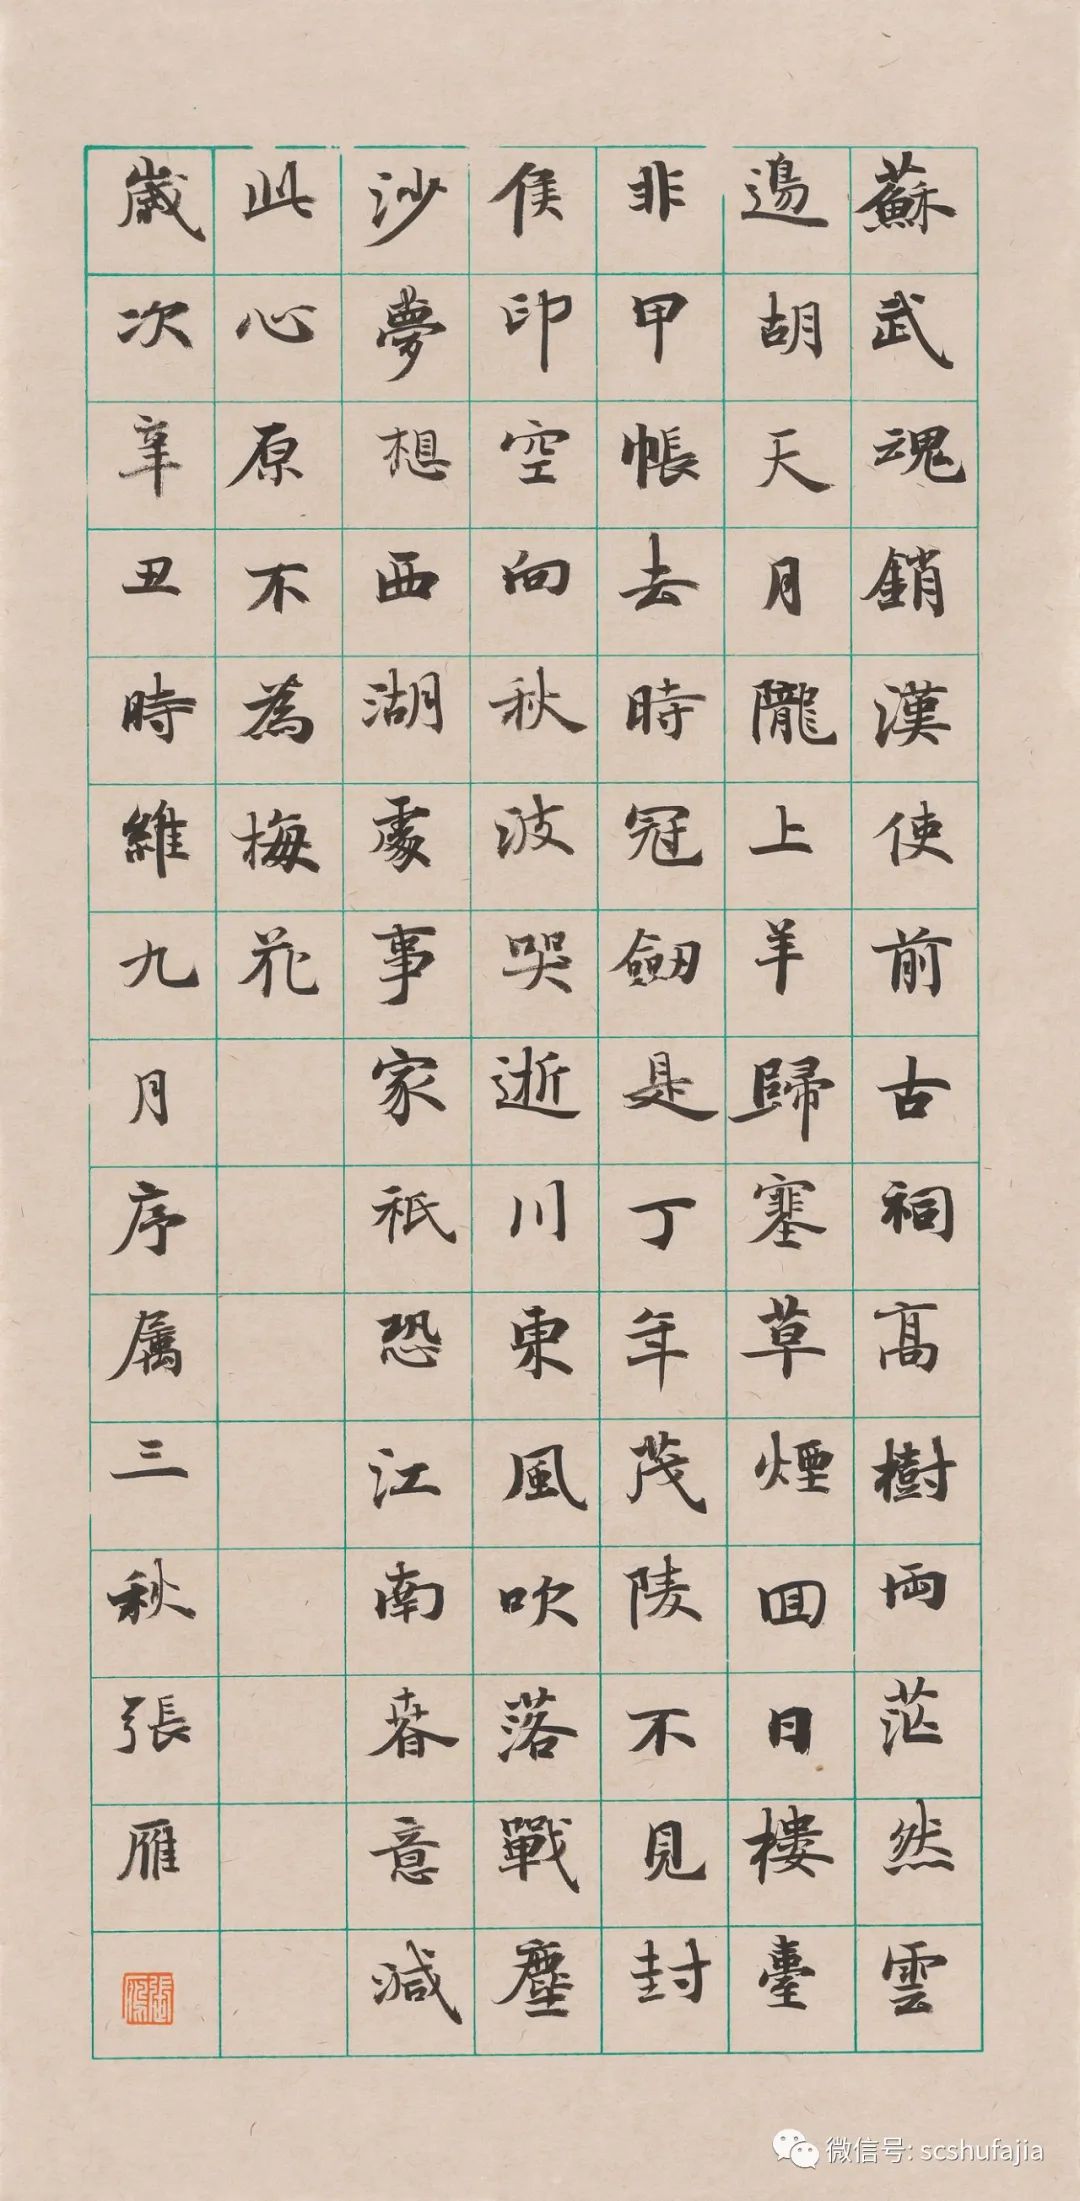 蘇武魂銷漢使前古祠高樹兩茫然雲
邊胡天月隴上羊歸塞草煙回日樓臺
非甲帳去時冠劒是丁年茂陵不見封
侯印空向秋波哭逝川東風吹落戰塵
沙夢想西湖處事家祇恐江南春意減
此心原不為梅花
歲次辛丑時維九月序属三秋張雁
張雁
微信号: scshufajia